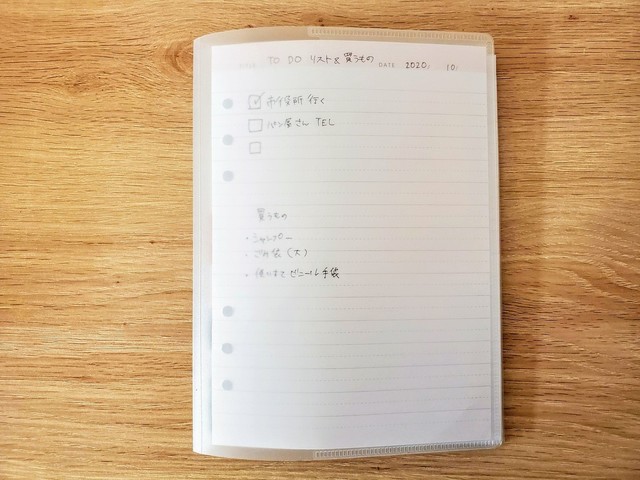 TO DO リスト & 買うもの DATE 2020/ 10/
市役所 行く
パン屋さん TEL
買うもの
・シャンプー
・ごみ袋 (大)
・使いすて ビニール手袋